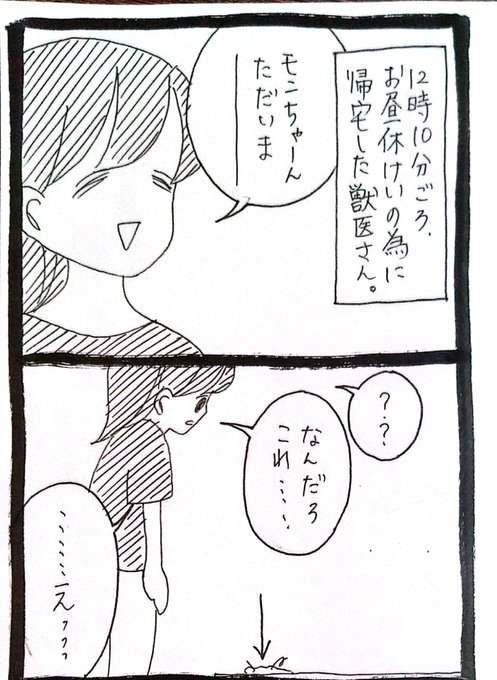 12時10分ごろ、
お昼休けいの為に
帰宅した獣医さん。
モニちゃーん
ただいまー
？？
なんだろ
これ……
……えっっっ